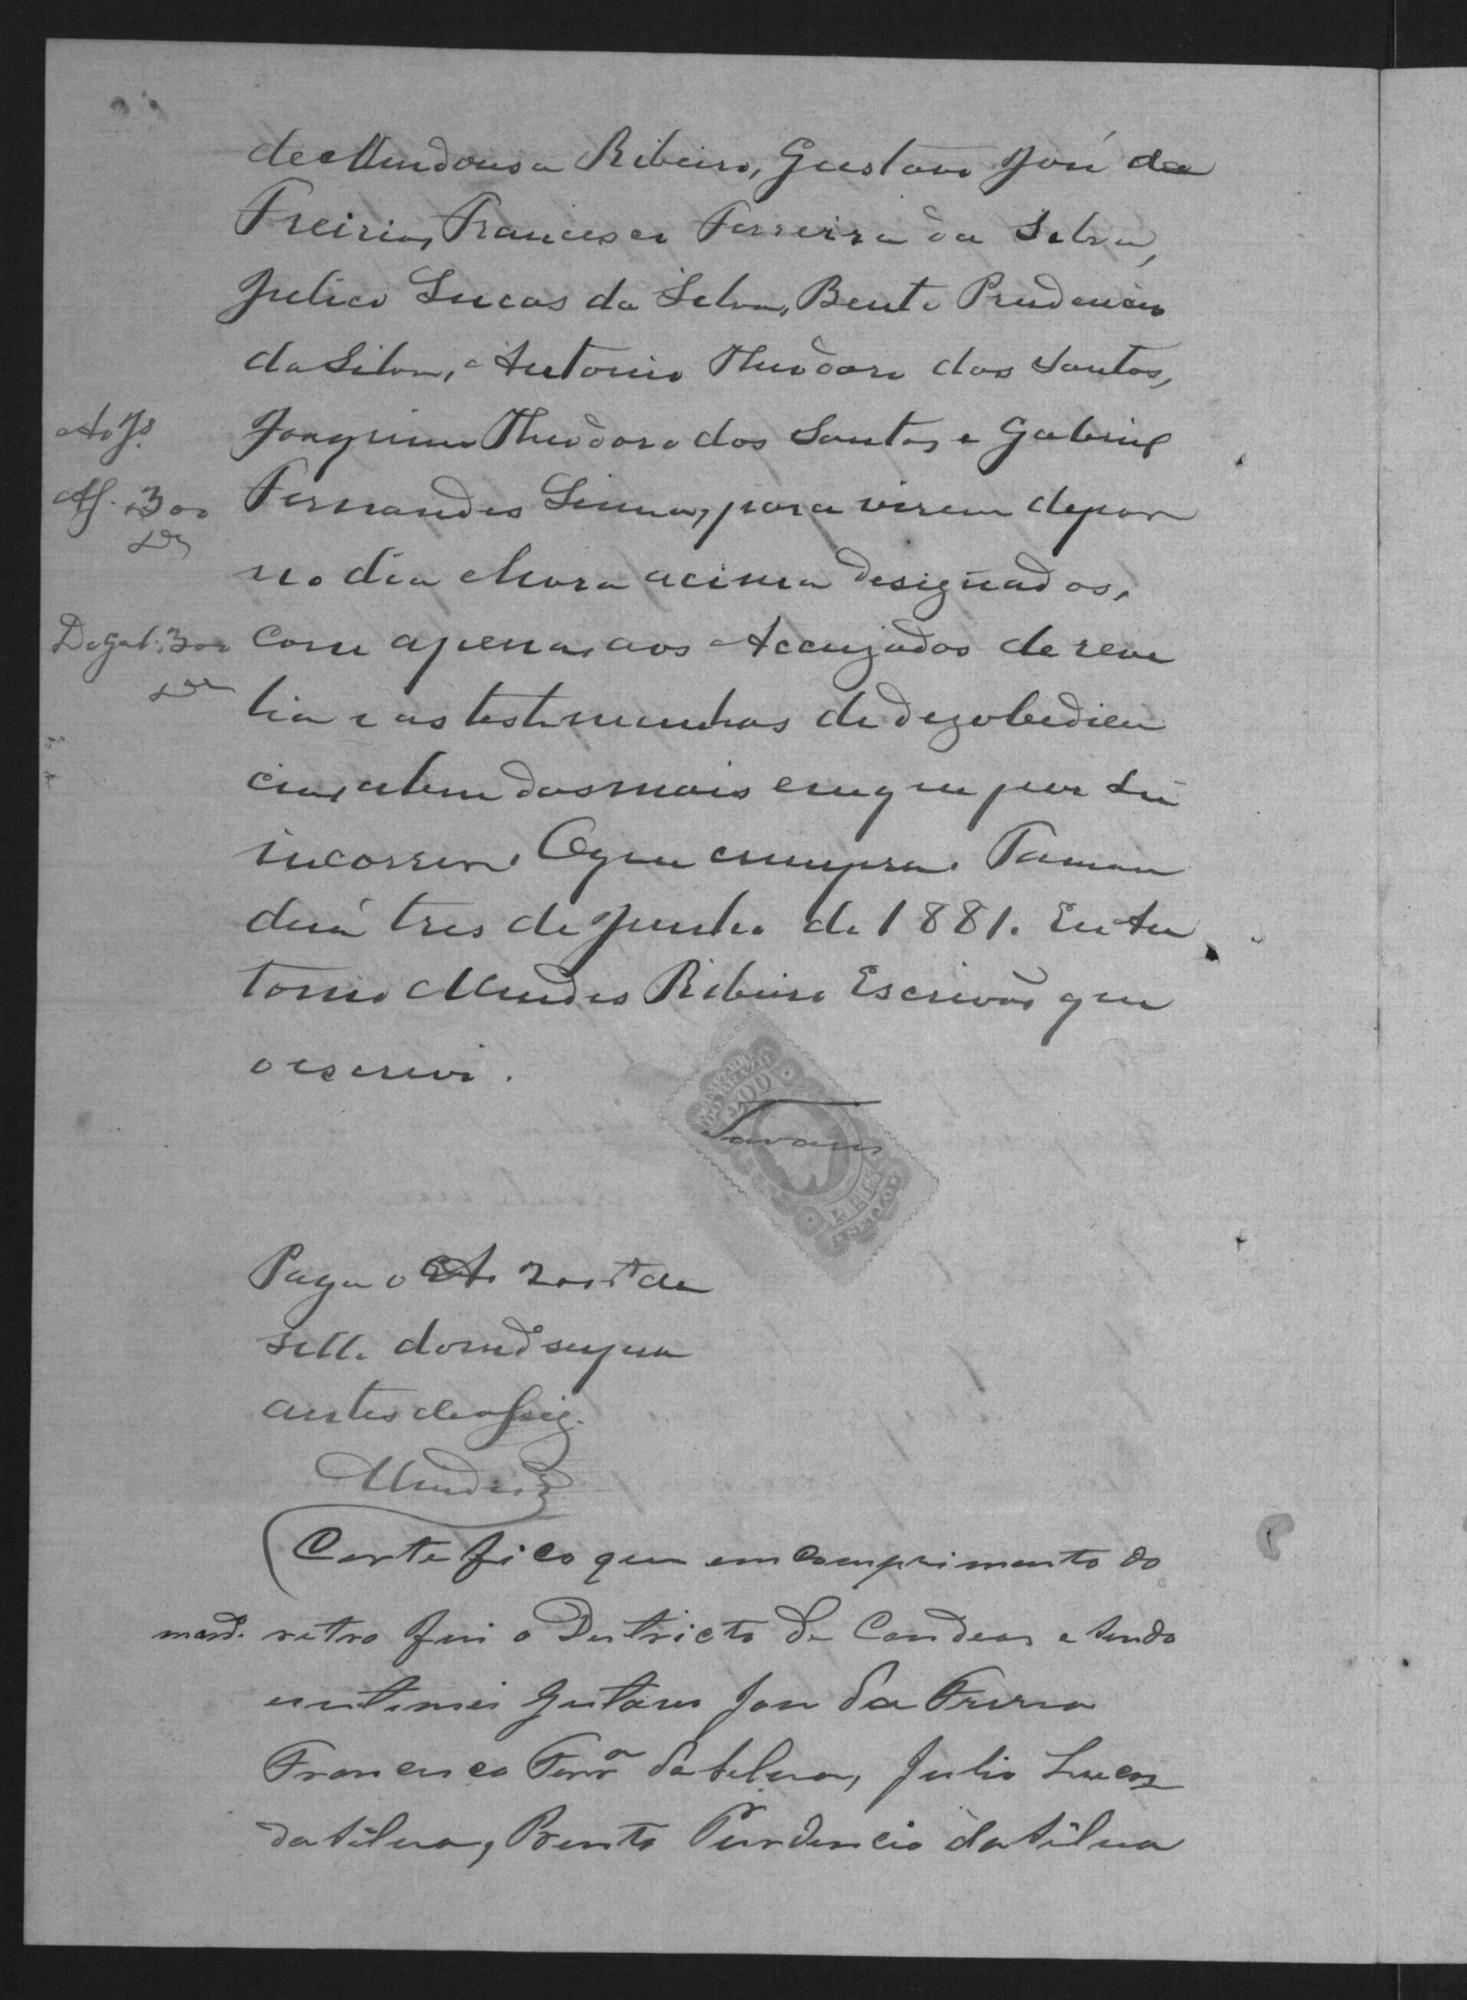 de Mendonsa Ribeiro, Gustavo José da
Freiria, Francisco Ferreira da Silva,
Julio Lucas da Silva, Bento Prudencio
da Silva, Antonio Theodoro dos Santos,
Ao Js.
Joaquim Theodoro dos Santos, e Gabriel
Af. 300
Fernandes Lima, para virem depor
no dia e hora acima designados,
D.gal. 300
com a pena, aos Accuzados de reve
lia e as testemunhas de dezobedien
cia, alem das mais em que por Lei
incorrer. O que cumpra. Taman
duá tres de Junho de 1881. Eu An
tonio Mendes Ribeiro Escrivão que
o escrevi.
200
REIS
Tavares
Paga o A. 200 rs de
sello do md segua
antes de assig.
Mendes
Certefico que em comprimento do
mand. retro fui o Destricto de Candeas e sendo
entimei Gustavo José da Freria
Francisco Ferrª da Silva, Julio Lucas
da Silva, Bento Prudencio da Silva